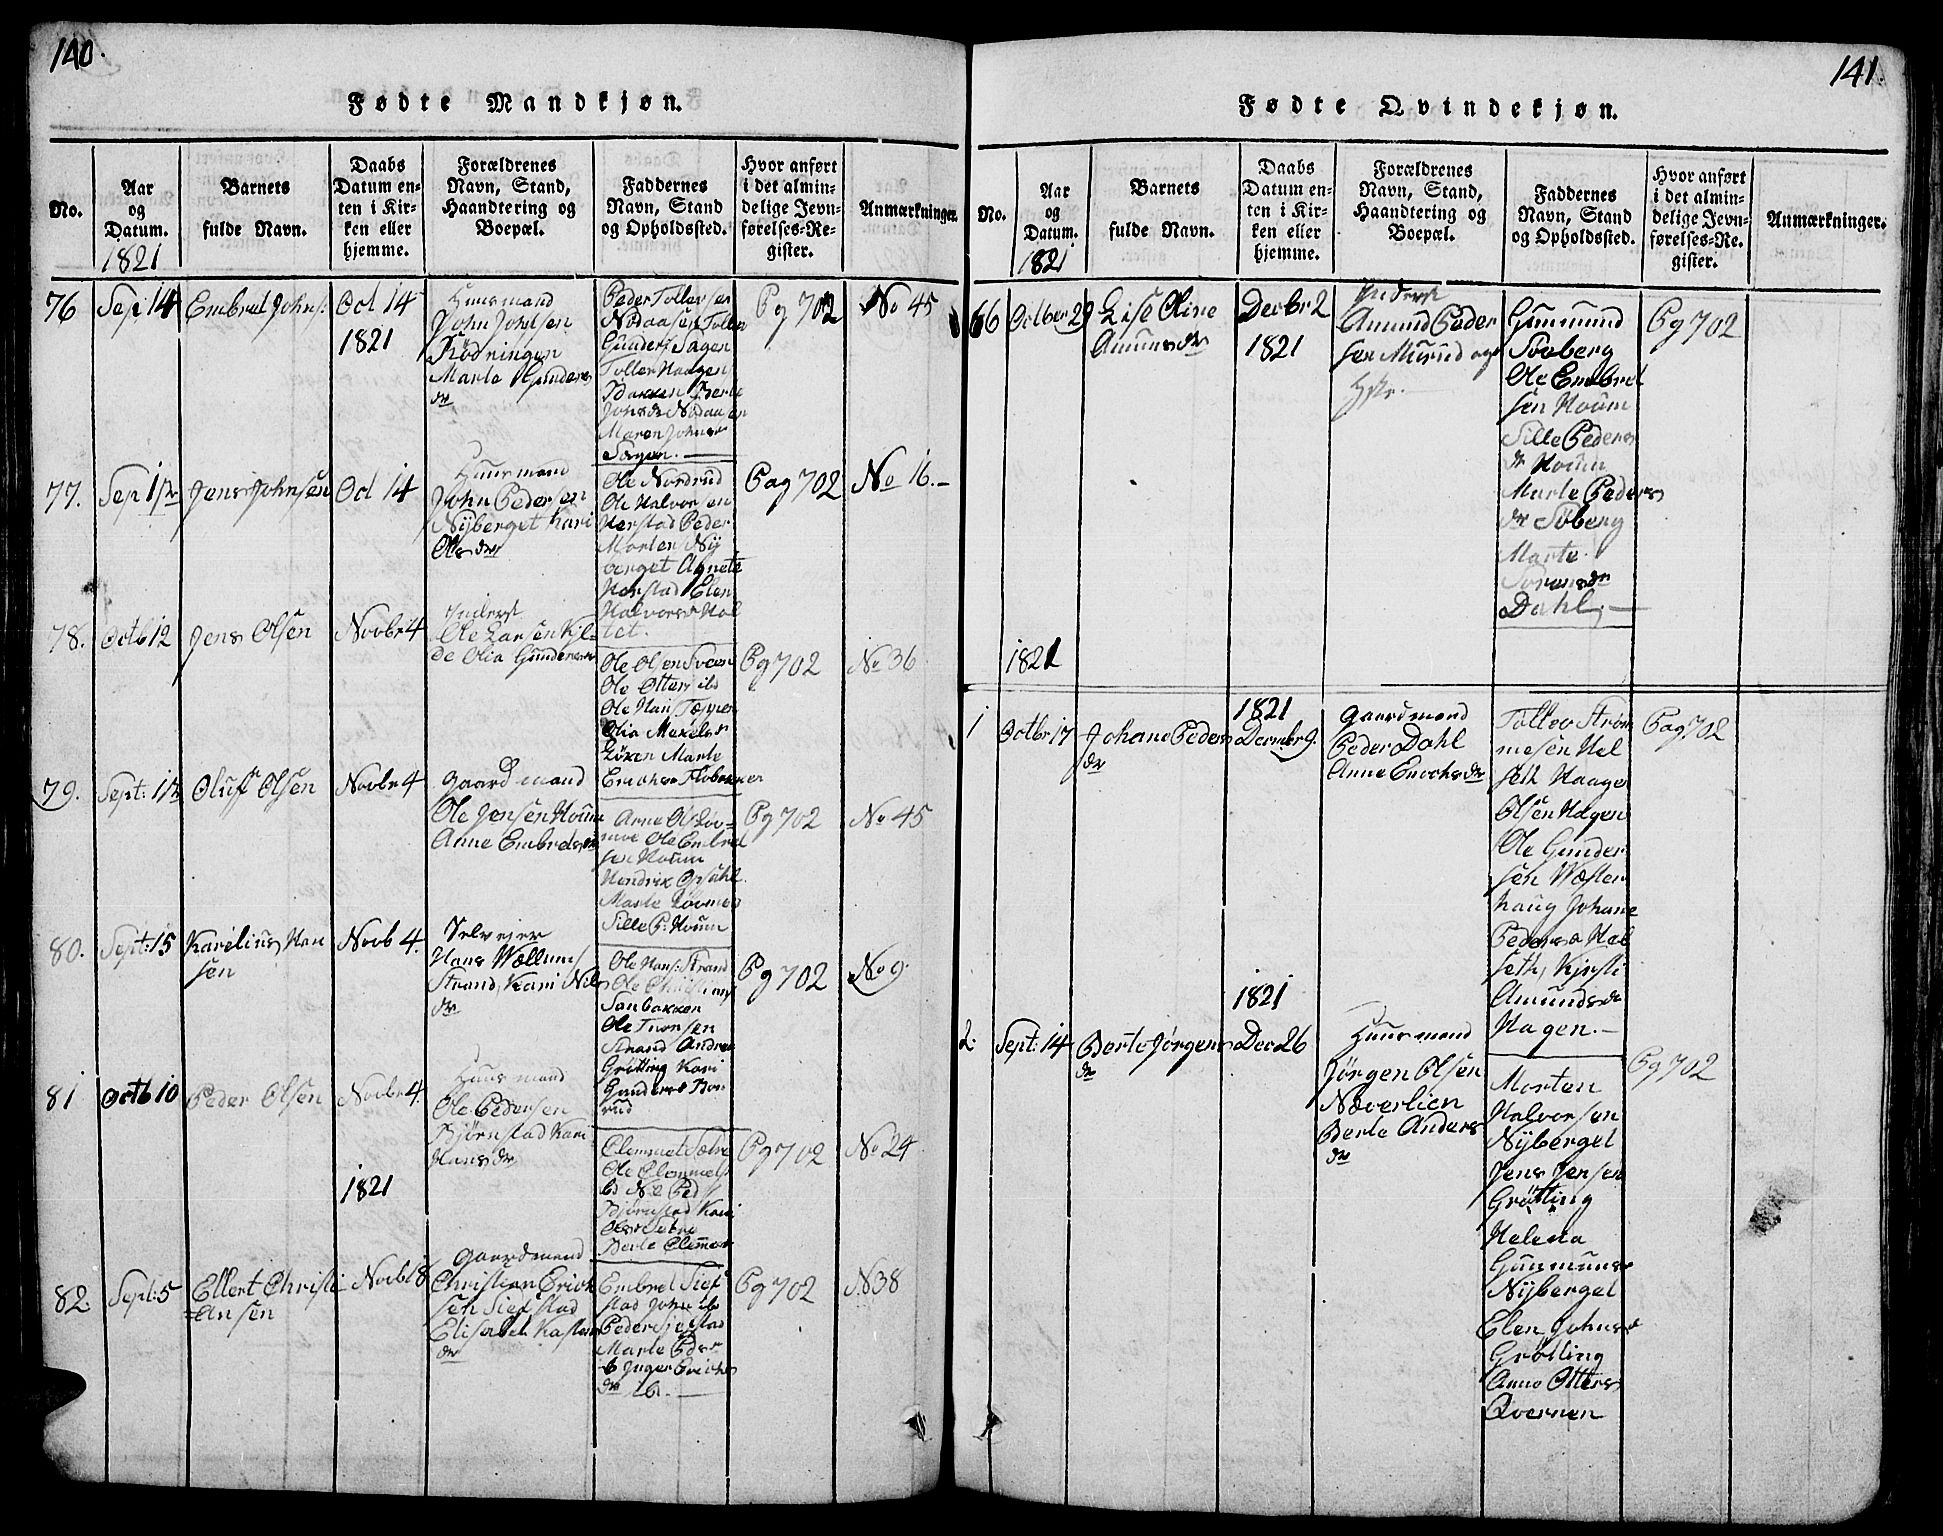 140.
Fødte Mandkjøn.
No.
Aar
og
Datum.
1821
Barnets
fulde Navn.
Daabs
Datum en-
ten i Kir-
ken eller
hjemme.
Forældrenes
Navn, Stand,
Haandtering og
Boepæl.
Faddernes
Navn, Stand
og Opholdssted.
Hvor anført
i det almin-
delige Jevn-
førelses-Re-
gister.
Anmærkninger.
76
Sep 14
Embret Johns:
Oct 14
1821
Huusmand
John Johnsen
Rödningen
Marte Gunders
dr
Peder Tollersen
Gunders Sagen
Toller Haagen
Bakken Berte
Maren Johns
Sagen.
Pg 702
No 45
77.
Sep
Jens Johnsen
Oct 14
Huusmand
John Pedersen
Nÿberget Kari
Ols dr
Ole Nordrud
Ole Halvorsen
Harstad Peder
Morten Nÿ
berget Agnete
Harstad Elen
Halvors
tet.
Pag 702
No 16.
78.
Octb 12
Jens Olsen
Novbr 4
Inderst
Ole Larsen Kil-
de Olia Gunders
Ole Olsen Sveen
Ole Otters
Ole Hans Tæppen
Olia
Löken Marte
Erichs
Pg 702
No 36
79.
Sept:
Oluf Olsen
Novbr 4
Gaardmand
Ole Jensen Houm
Anne Embrets
Arne Ols Löv-
moe Ole Embret
sen Houm
Hendrik Opsahl
Marte Lövmoe
Sille P: Houm
Pg 702
No 45
80.
Sept: 15
Karelius Han
sen
Novb 4.
Selveier
Hans Wællum
Strand, Kari Nils
dr
Ole Hans: Strand
Ole Christians
Sanbakken
Ole
Strand Andrea
Grötting Kari
Gunders
rud
Pg 702
No 9.
81
Octb 10
Peder Olsen
Novbr 4.
1821
Huusmand
Ole Pedersen
Björnstad Kari
Hans dr
Clemmet
Ole Clemmets
Björnstad Kari
Berte Clemmets
Pg 702
No 24
82.
Sept: 5
Ellert Christi
=ansen
Novb 18
Gaardmand
Christian Erick
sen Siesstad
Elisabet Karsten
dr
Embret Sies
stad John
Peder Siestad
Marte
Inger Erichs
dr
Pg 702
N 38
141.
Fødte Qvindekjøn.
No.
Aar
og
Datum.
1821
Barnets
fulde Navn.
Daabs
Datum en-
ten i Kir-
ken eller
hjemme.
Forældrenes
Navn, Stand,
Haandtering og
Boepæl.
Faddernes
Navn, Stand
og Opholdssted.
Hvor anført
i det almin-
delige Jevn-
førelses-Re-
gister.
Anmærkninger.
66
Octber 29
Lise Oline
Amunds dr
Decbr 2
1821
Inderst
Amund Peder
sen Murud og
Gunmund
Soeberg
Ole Embret
sen Houm
Sille Peders
dr Houm
Marte Peders
dr Söberg
Marte
Sörens dr
Dahl.
Pg 702
1821
1
Octbr 17
Johane Peders
dr
1821
Decmbr 9.
Gaardmand
Peder Dahl
Anne Enochs dr
Tollev Ström
mesen Hal
seth Haagen
Olsen Hagen
Ole Gunder
sen Wæster
haug Johane
Peders Hal
seth, Kjersti
Amunds dr
Hagen.
Pag 702
2.
Sept: 14
Berte Jörgens
dr
1821
Dec 26
Huusmand
Jörgen Olsen
Næverlien
Berte Anders
dr
Morten
Halvorsen
Nÿberget
Jens Jensen
Grötting
Helena
Gunmunds
Nÿberget
Elen Johns
Grötting
Anne Otters
Qvernen
Pg 702